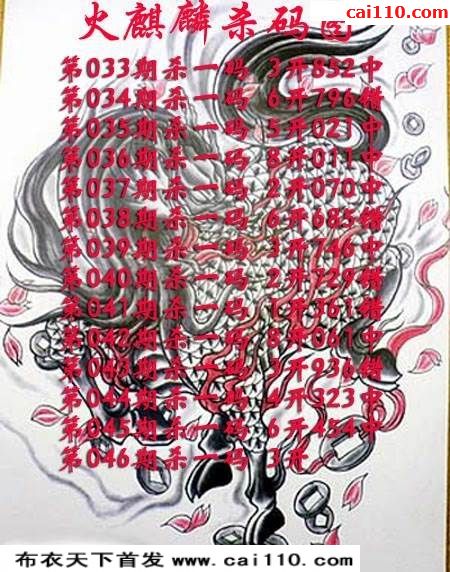 cai110.com
火麒麟杀码
第033期杀一码 3开852中
第034期杀一码 6开796错
第035期杀一码 5开021中
第036期杀一码 8开011中
第037期杀一码 2开070中
第038期杀一码 6开685错
第039期杀一码 3开746中
第040期杀一码 2开729错
第041期杀一码 1开361错
第042期杀一码 8开061中
第043期杀一码 3开936错
第044期杀一码 4开323中
第045期杀一码 6开454中
第046期杀一码 3开
布衣天下首发 www.cai110.com